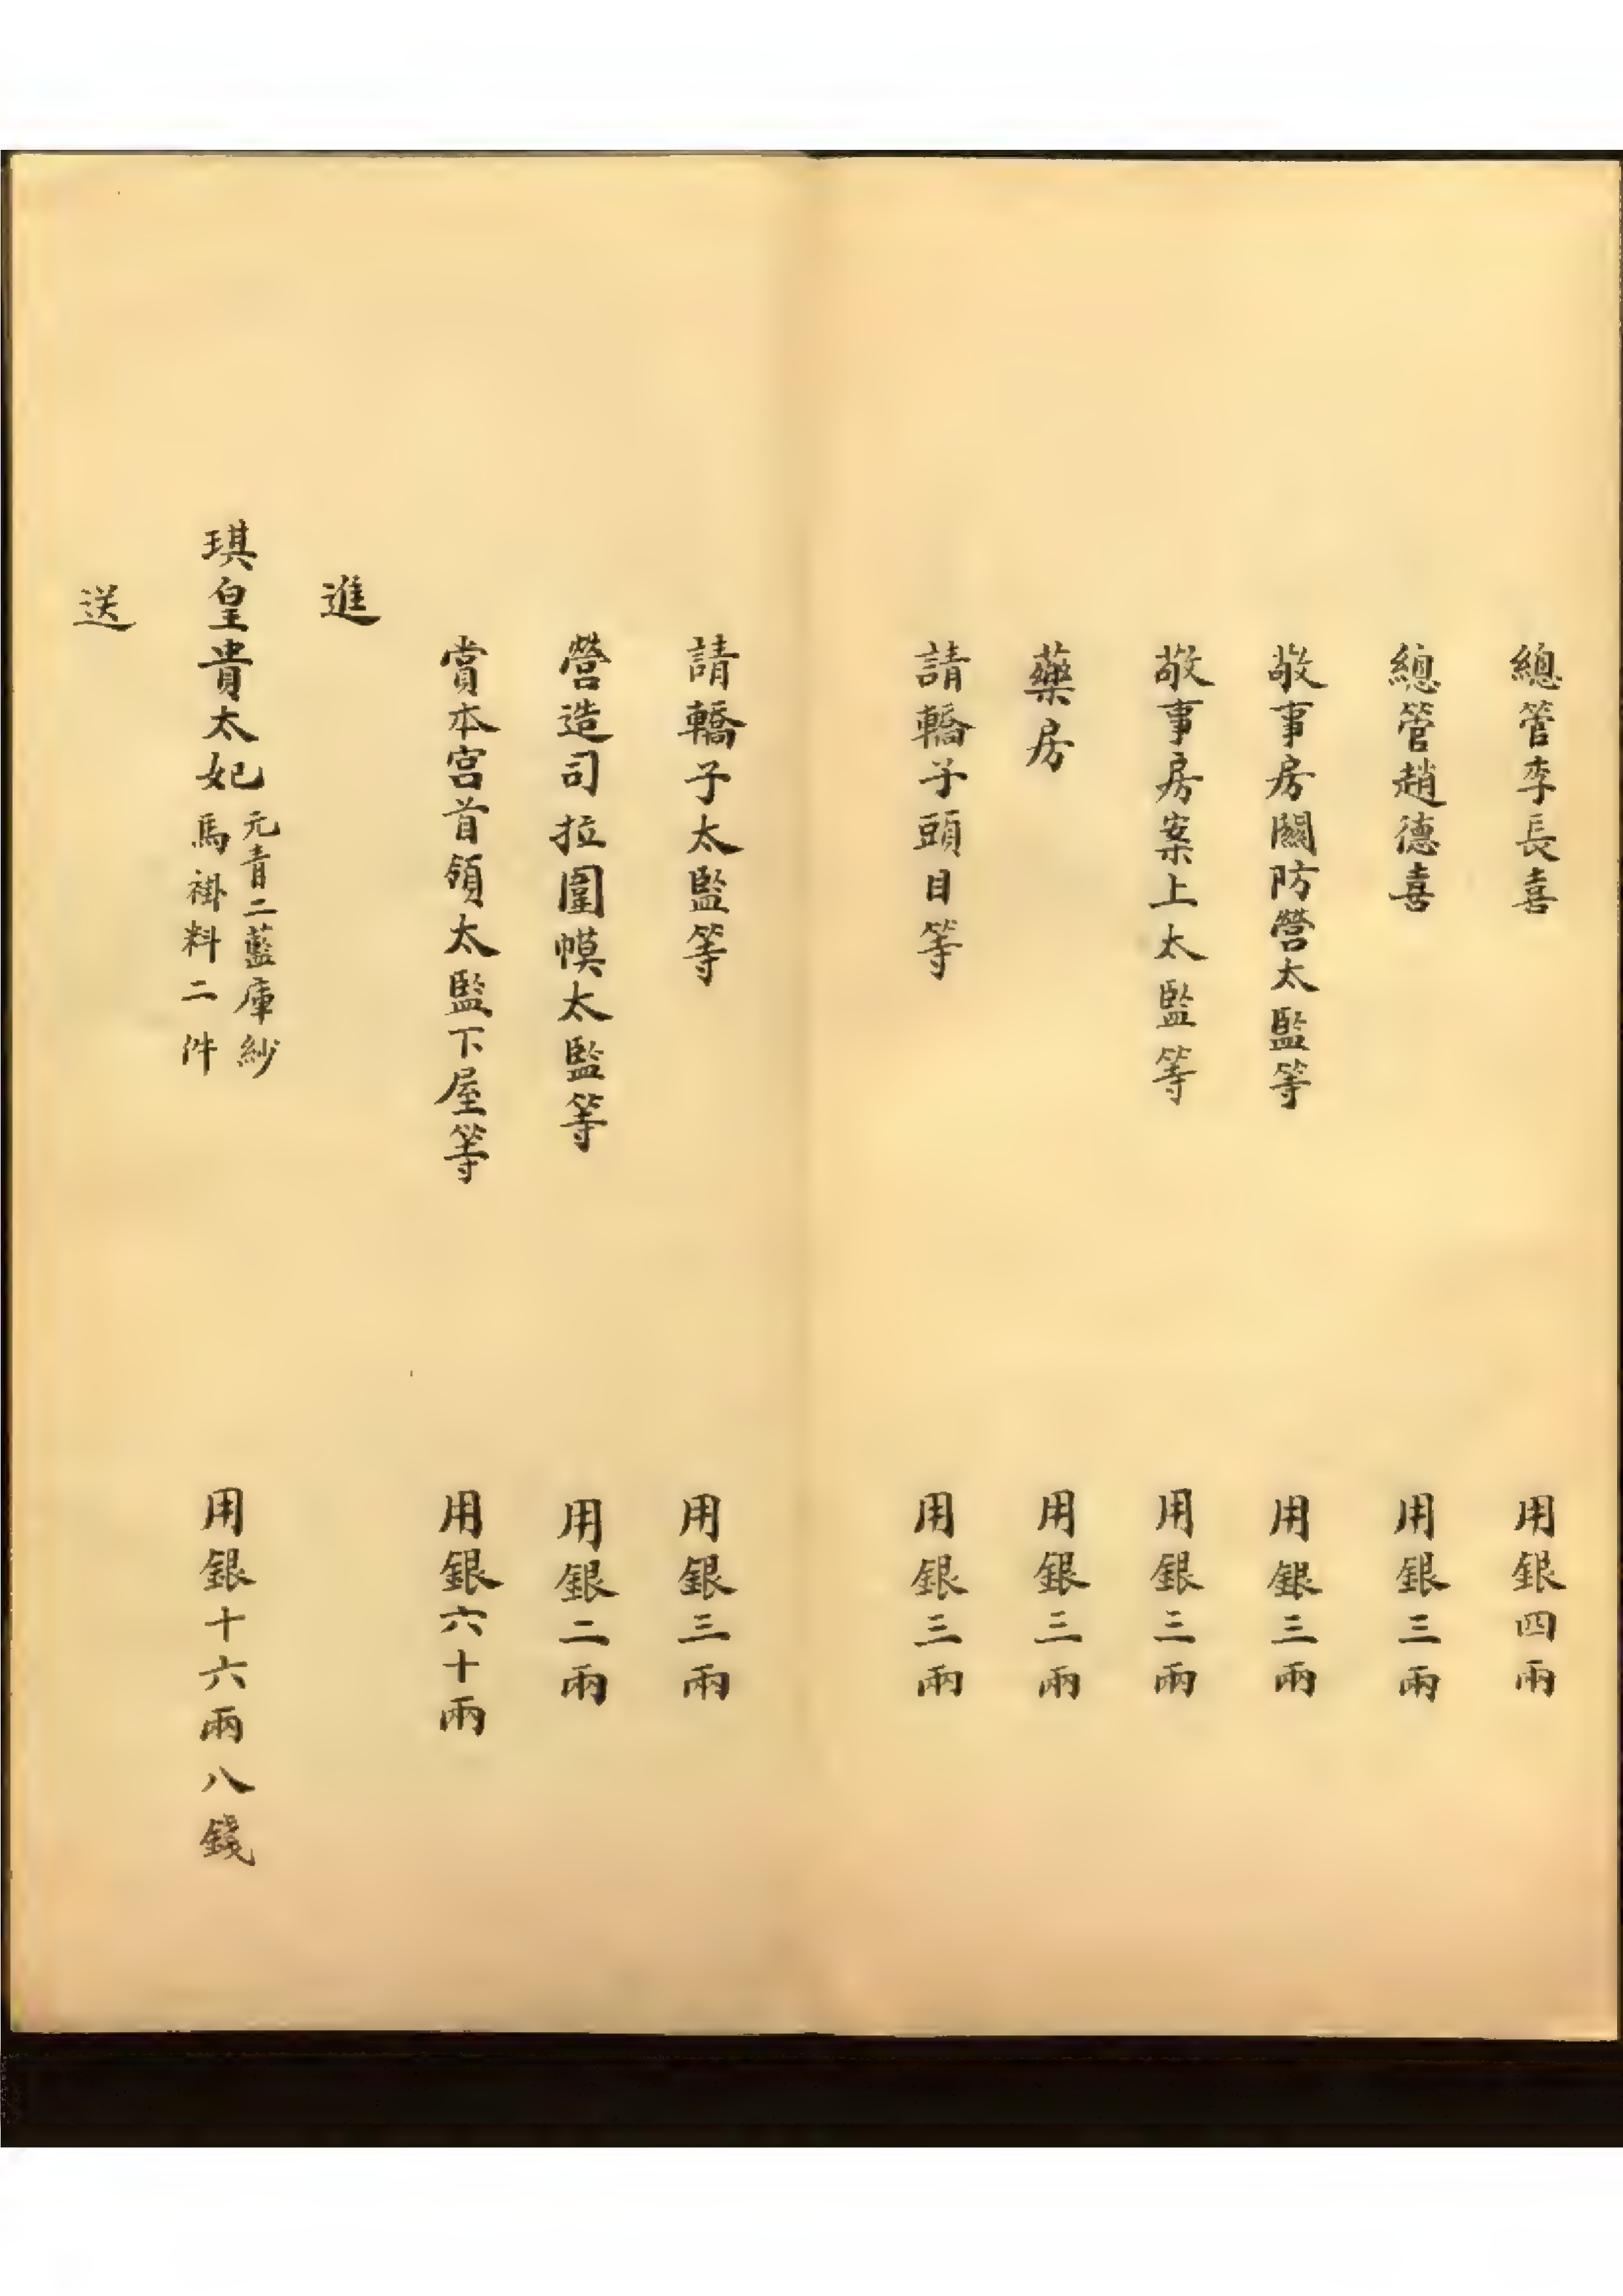 總管李長喜 用銀四兩
總管趙德喜 用銀三兩
敬事房關防營太監等 用銀三兩
敬事房案上太監等 用銀三兩
藥房 用銀三兩
請轎子頭目等 用銀三兩
請轎子太監等 用銀三兩
營造司拉圍幙太監等 用銀二兩
賞本宮首領太監下屋等 用銀六十兩
進
琪皇貴太妃 元青二藍庫紗
馬褂料二件 用銀十六兩八錢
送